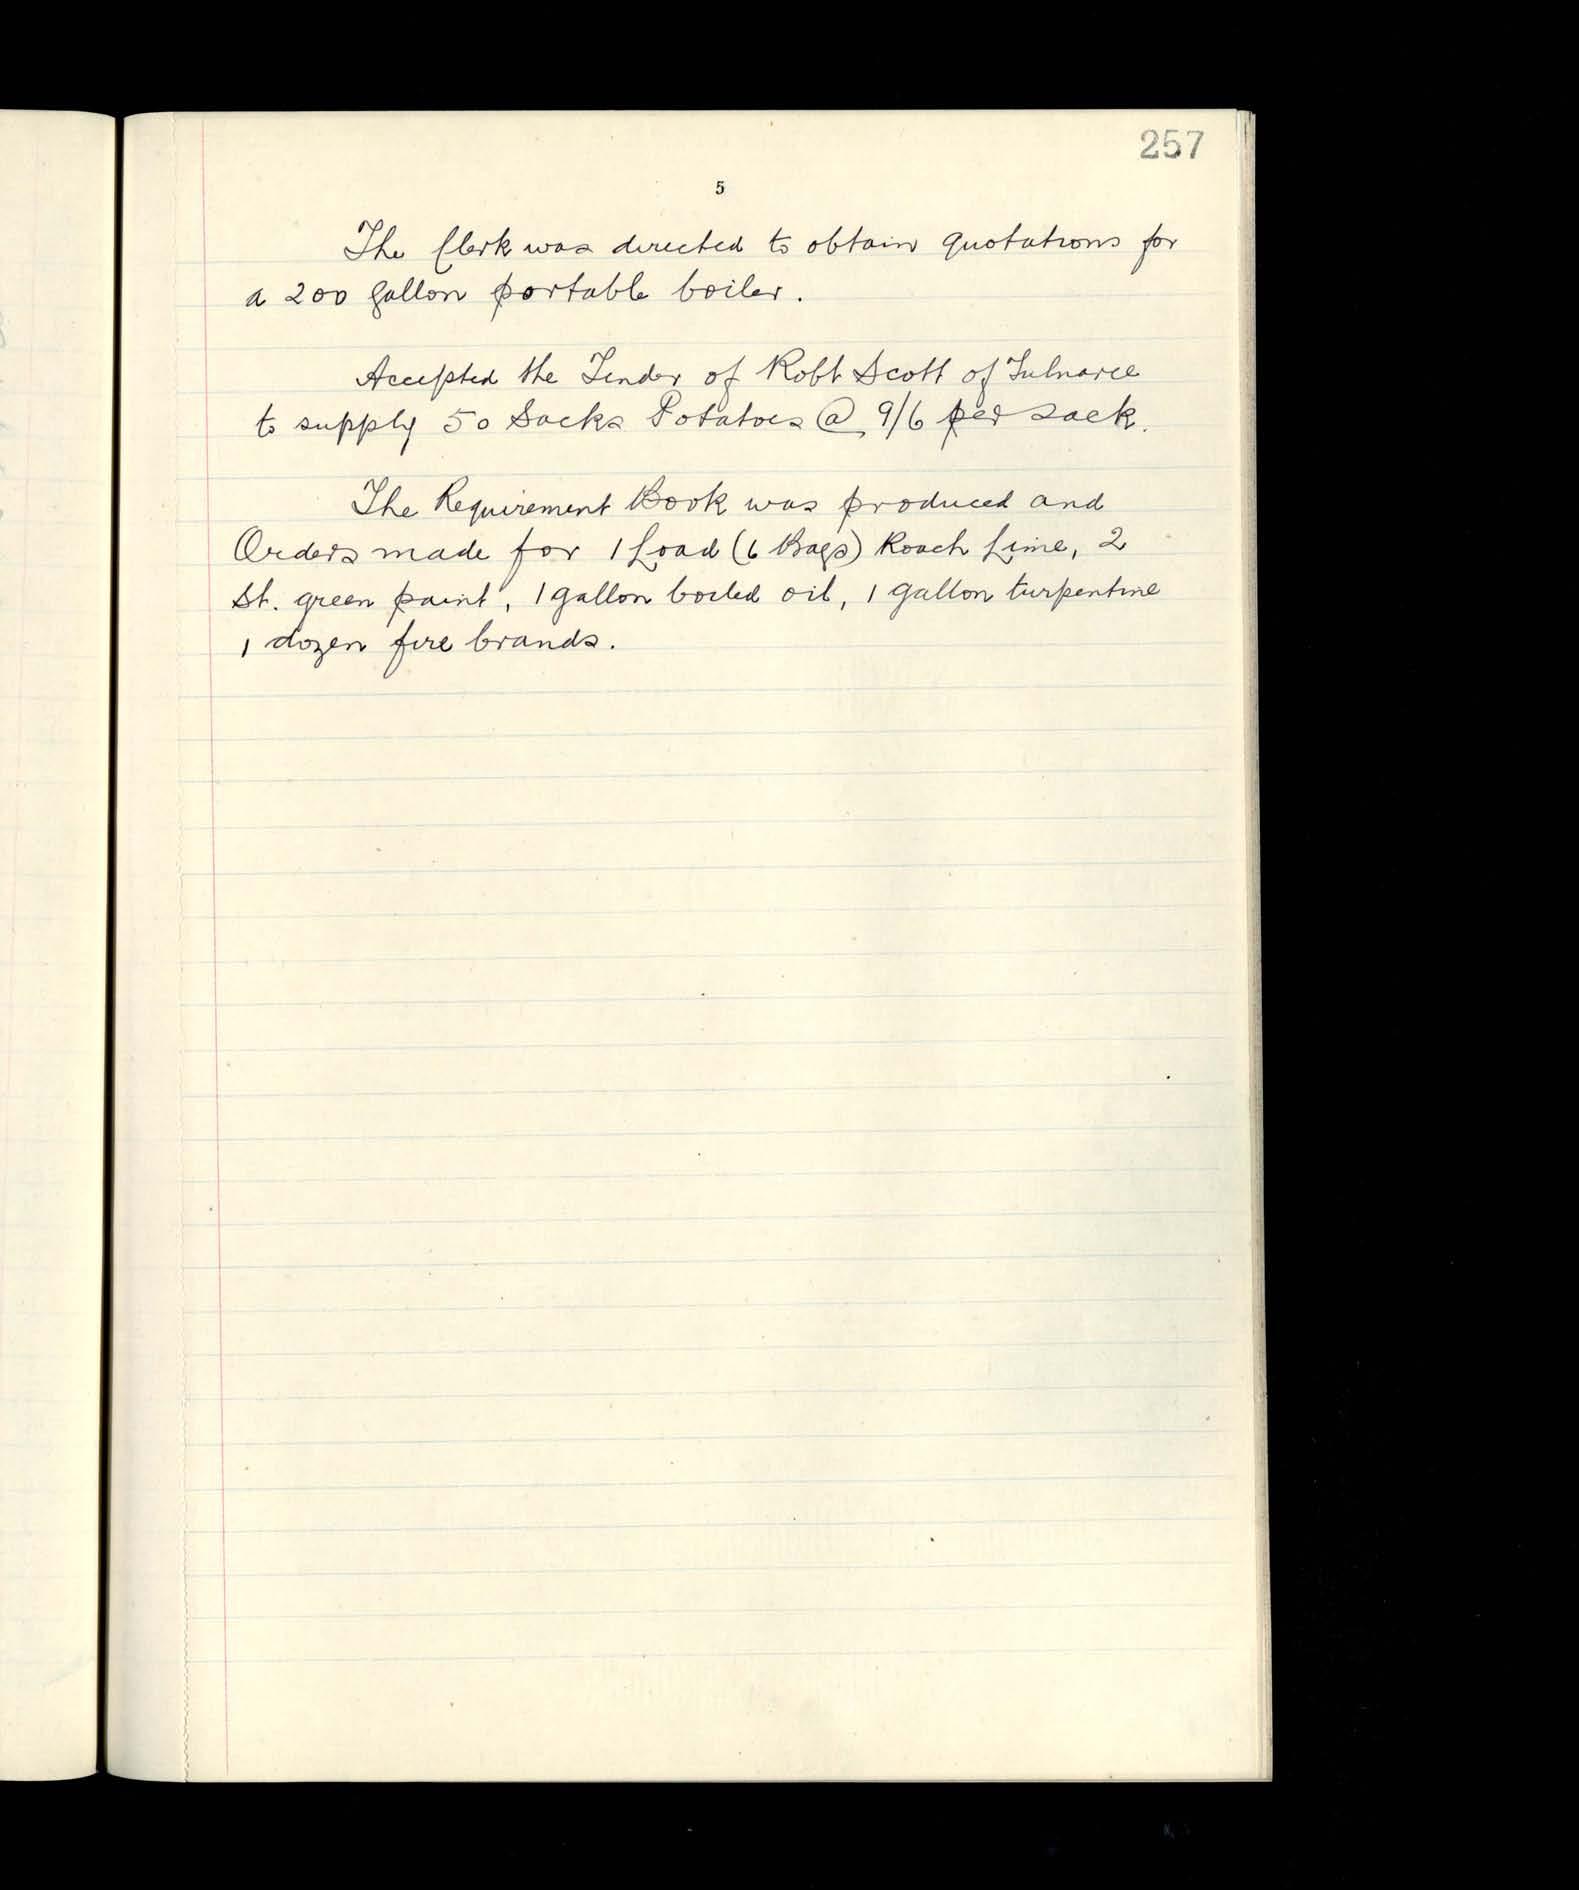 257
5
The Clerk was directed to obtain quotations for
a 200 gallon portable boiler.
Accepted the Tender of Robt Scott of Tulnavee
to supply 50 Sacks Potatoes @ 9/6 per sack.
The Requirement Book was produced and
Orders made for 1 Load (6 Bags) Roach Lime, 2
St. green paint, 1 gallon boiled oil, 1 gallon turpentine
1 dozen fire brands.